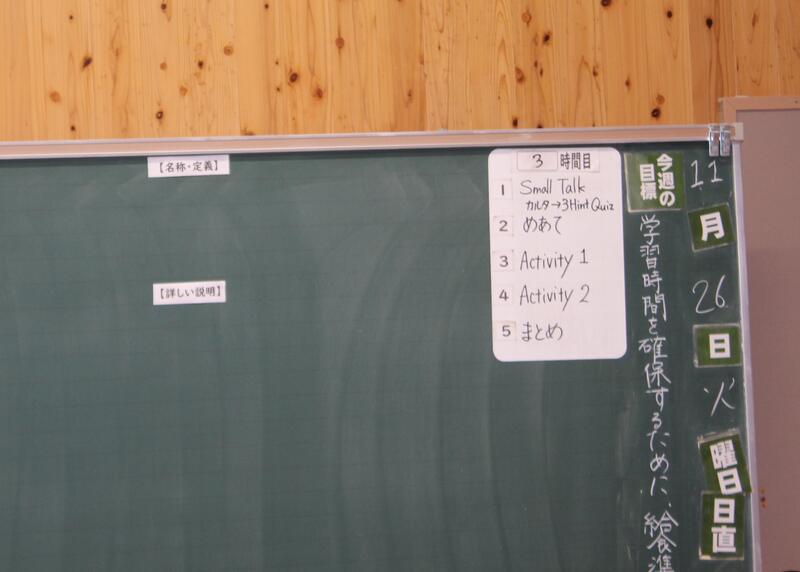 【名称・定義】
【詳しい説明】
3 時間目
1 Small Talk
カルタ→3Hint Quiz
2 めあて
3 Activity 1
4 Activity 2
5 まとめ
今週の目標
学習時間を確保するために、給食準
11月26日火曜日
日直